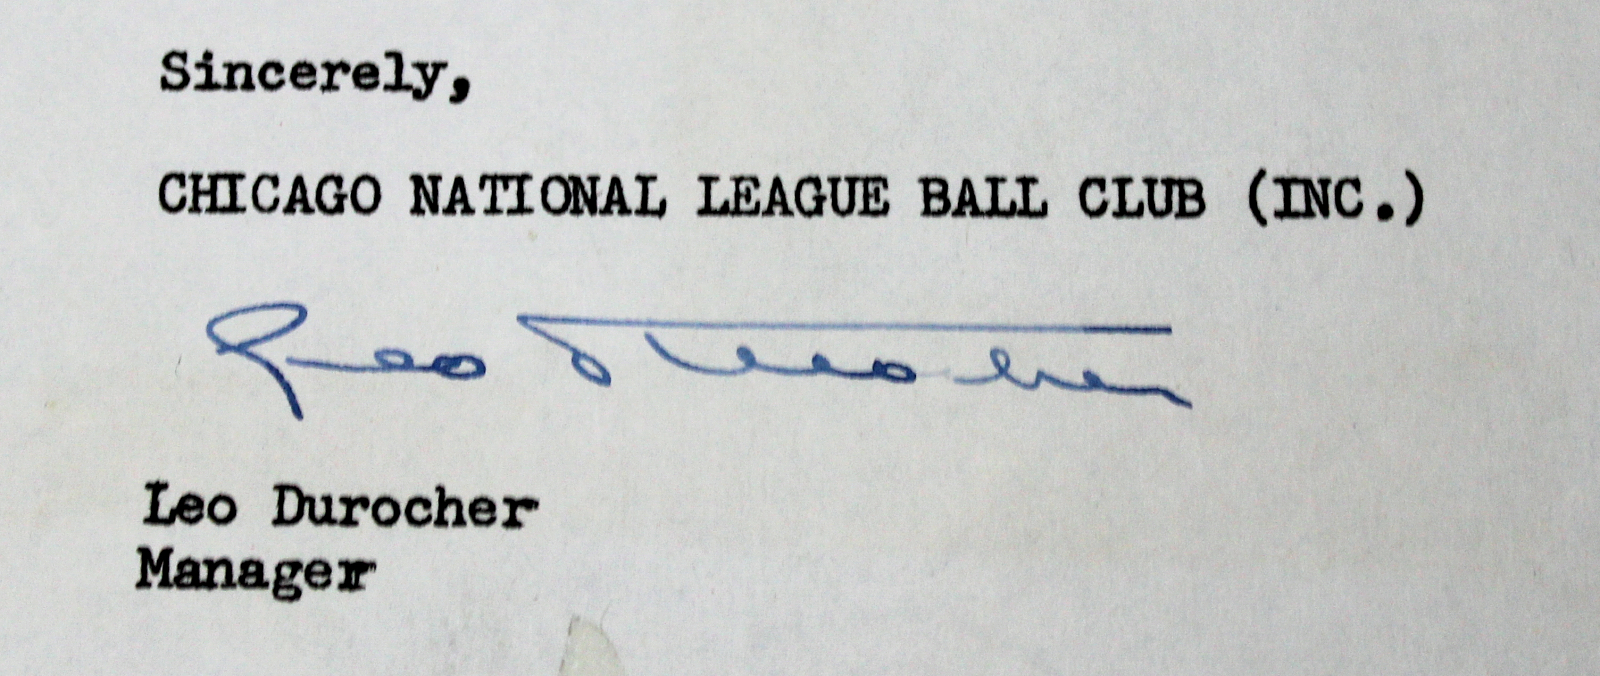 Sincerely,
CHICAGO NATIONAL LEAGUE BALL CLUB (INC.)
Leo Durocher
Leo Durocher
Manager